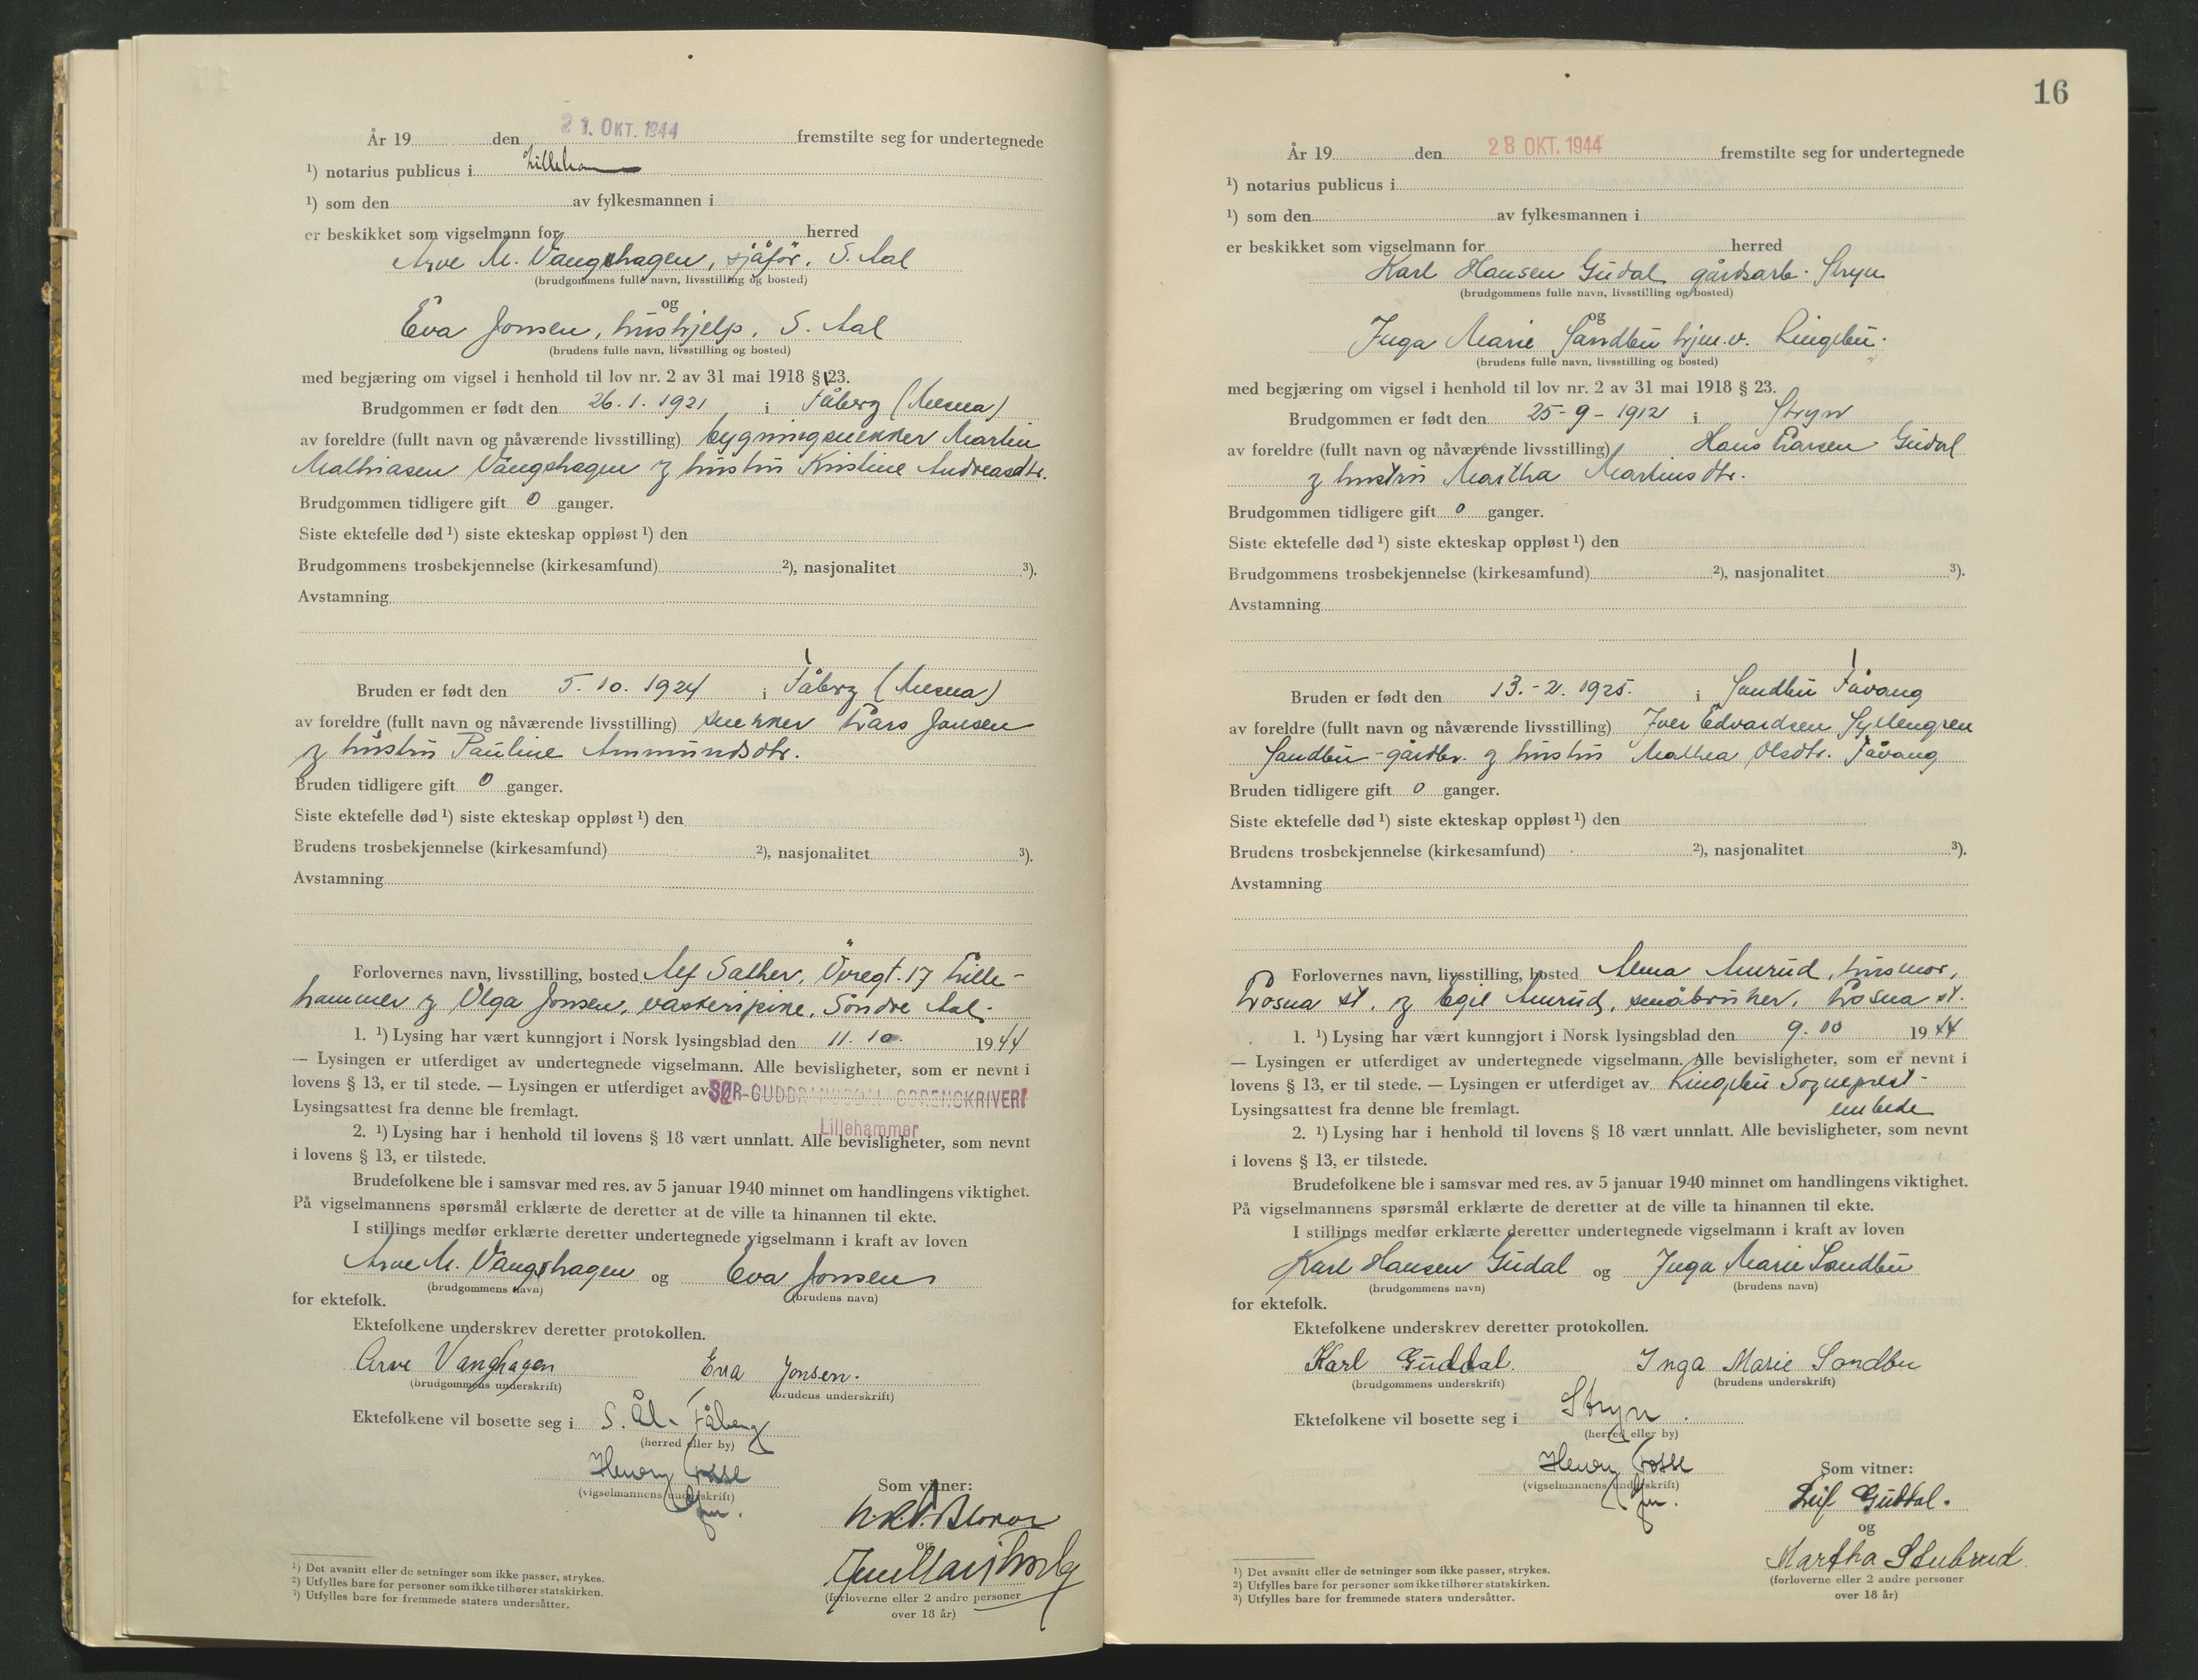 År 19 den 21. OKT. 1944 fremstilte seg for undertegnede
¹) notarius publicus i Lilleham
¹) som den av fylkesmannen i
er beskikket som vigselmann for herred
Arve M. Vangshagen, sjåför, S. Aal
(brudgommens fulle navn, livsstilling og bosted)
og
Eva Jonsen, hushjelp, S. Aal
(brudens fulle navn, livsstilling og bosted)
med begjæring om vigsel i henhold til lov nr. 2 av 31 mai 1918 § 23.
Brudgommen er født den 26. 1. 1921 i Fåberg (Mesna)
av foreldre (fullt navn og nåværende livsstilling) bygningsnekker Martin
Mathiasen Vangshagen og hustru Kristine Andreasdtr.
Brudgommen tidligere gift 0 ganger.
Siste ektefelle død ¹) siste ekteskap oppløst ¹) den
Brudgommens trosbekjennelse (kirkesamfund) ²), nasjonalitet ³).
Avstamning
Bruden er født den 5. 10. 1924 i Fåberg (Mesna)
av foreldre (fullt navn og nåværende livsstilling) snekker Lars Jonsen
og hustru Pauline Ammundsdtr.
Bruden tidligere gift 0 ganger.
Siste ektefelle død ¹) siste ekteskap oppløst ¹) den
Brudens trosbekjennelse (kirkesamfund) ²), nasjonalitet ³).
Avstamning
Forlovernes navn, livsstilling, bosted Alf Sæther, Övregt. 17 Lille-
hammer og Olga Jonsen, vaskeripike, Söndre Aal.
1. ¹) Lysing har vært kunngjort i Norsk lysingsblad den 11. 10. 1944
— Lysingen er utferdiget av undertegnede vigselmann. Alle bevisligheter, som er nevnt i
lovens § 13, er til stede. — Lysingen er utferdiget av SØR-GUDBRANDSDAL SORENSKRIVERI
Lysingsattest fra denne ble fremlagt.
Lillehammer
2. ¹) Lysing har i henhold til lovens § 18 vært unnlatt. Alle bevisligheter, som nevnt
i lovens § 13, er tilstede.
Brudefolkene ble i samsvar med res. av 5 januar 1940 minnet om handlingens viktighet.
På vigselmannens spørsmål erklærte de deretter at de ville ta hinannen til ekte.
I stillings medfør erklærte deretter undertegnede vigselmann i kraft av loven
Arve M. Vangshagen og Eva Jonsen
(brudgommens navn) (brudens navn)
for ektefolk.
Ektefolkene underskrev deretter protokollen.
Arve Vanghagen Eva Jonsen.
(brudgommens underskrift) (brudens underskrift)
Ektefolkene vil bosette seg i S. Ål. Fåberg
(herred eller by)
Henry Fosse
(vigselmannens underskrift)
Som vitner:
og
(forloverne eller 2 andre personer
over 18 år)
¹) Det avsnitt eller de setninger som ikke passer, strykes.
²) Utfylles bare for personer som ikke tilhører statskirken.
³) Utfylles bare for fremmede staters undersåtter.
16
År 19 den 28 OKT. 1944 fremstilte seg for undertegnede
¹) notarius publicus i
¹) som den av fylkesmannen i
er beskikket som vigselmann for herred
Karl Hansen Gudal gårdsarb. Stryn
(brudgommens fulle navn, livsstilling og bosted)
og
Inga Marie Sandbu hjm.v. Ringebu.
(brudens fulle navn, livsstilling og bosted)
med begjæring om vigsel i henhold til lov nr. 2 av 31 mai 1918 § 23.
Brudgommen er født den 25-9-1912 i Stryn
av foreldre (fullt navn og nåværende livsstilling) Hans Larsen Gudal
og hustru Martha Martinsdtr.
Brudgommen tidligere gift 0 ganger.
Siste ektefelle død ¹) siste ekteskap oppløst ¹) den
Brudgommens trosbekjennelse (kirkesamfund) ²), nasjonalitet ³).
Avstamning
Bruden er født den 13.-2. 1925. i Sandbu Fåvang
av foreldre (fullt navn og nåværende livsstilling) Iver Edvardsen Syllengren
Sandbu - gårdbr. og hustru Mathea Olsdtr. Fåvang
Bruden tidligere gift 0 ganger.
Siste ektefelle død ¹) siste ekteskap oppløst ¹) den
Brudens trosbekjennelse (kirkesamfund) ²), nasjonalitet ³).
Avstamning
Forlovernes navn, livsstilling, bosted Alma Amrud, husmor,
Losna st. og Egil Amrud, småbruker, Losna st.
1. ¹) Lysing har vært kunngjort i Norsk lysingsblad den 9. 10 1944
— Lysingen er utferdiget av undertegnede vigselmann. Alle bevisligheter, som er nevnt i
lovens § 13, er til stede. — Lysingen er utferdiget av Ringebu Sogneprest-
Lysingsattest fra denne ble fremlagt. embede
2. ¹) Lysing har i henhold til lovens § 18 vært unnlatt. Alle bevisligheter, som nevnt
i lovens § 13, er tilstede.
Brudefolkene ble i samsvar med res. av 5 januar 1940 minnet om handlingens viktighet.
På vigselmannens spørsmål erklærte de deretter at de ville ta hinannen til ekte.
I stillings medfør erklærte deretter undertegnede vigselmann i kraft av loven
Karl Hansen Gudal og Inga Marie Sandbu
(brudgommens navn) (brudens navn)
for ektefolk.
Ektefolkene underskrev deretter protokollen.
Karl Guddal. Inga Marie Sandbu
(brudgommens underskrift) (brudens underskrift)
Ektefolkene vil bosette seg i Stryn.
(herred eller by)
Henry Fosse
(vigselmannens underskrift)
Som vitner:
Leif Guddal.
og
Martha Stubrud
(forloverne eller 2 andre personer
over 18 år)
¹) Det avsnitt eller de setninger som ikke passer, strykes.
²) Utfylles bare for personer som ikke tilhører statskirken.
³) Utfylles bare for fremmede staters undersåtter.